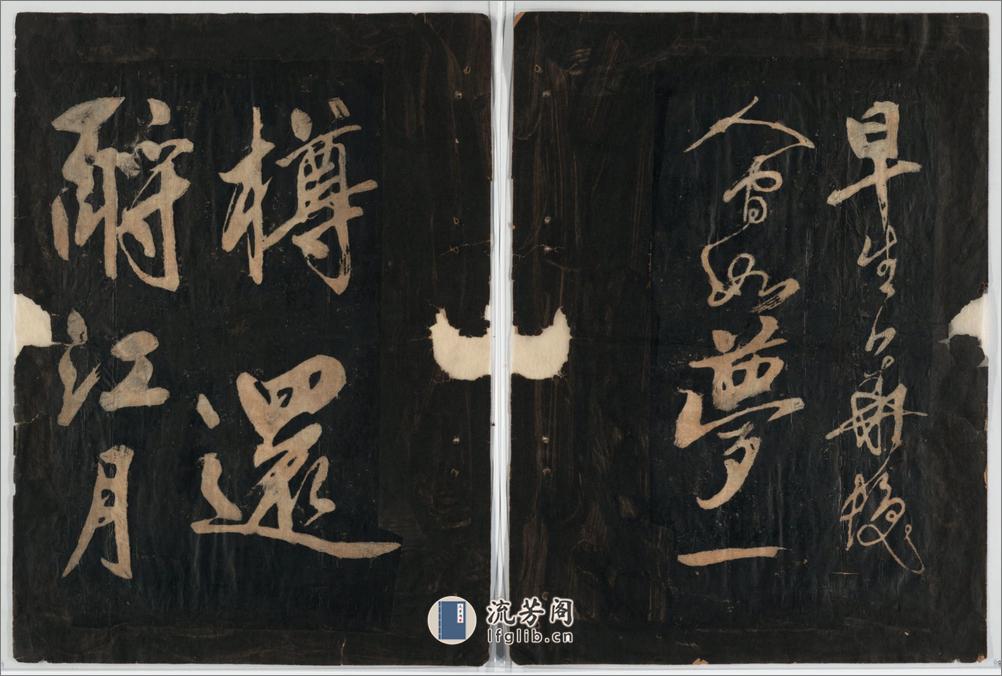 早生華髮
人間如夢一
樽還
酹江月
流芳阁
lfglib.cn